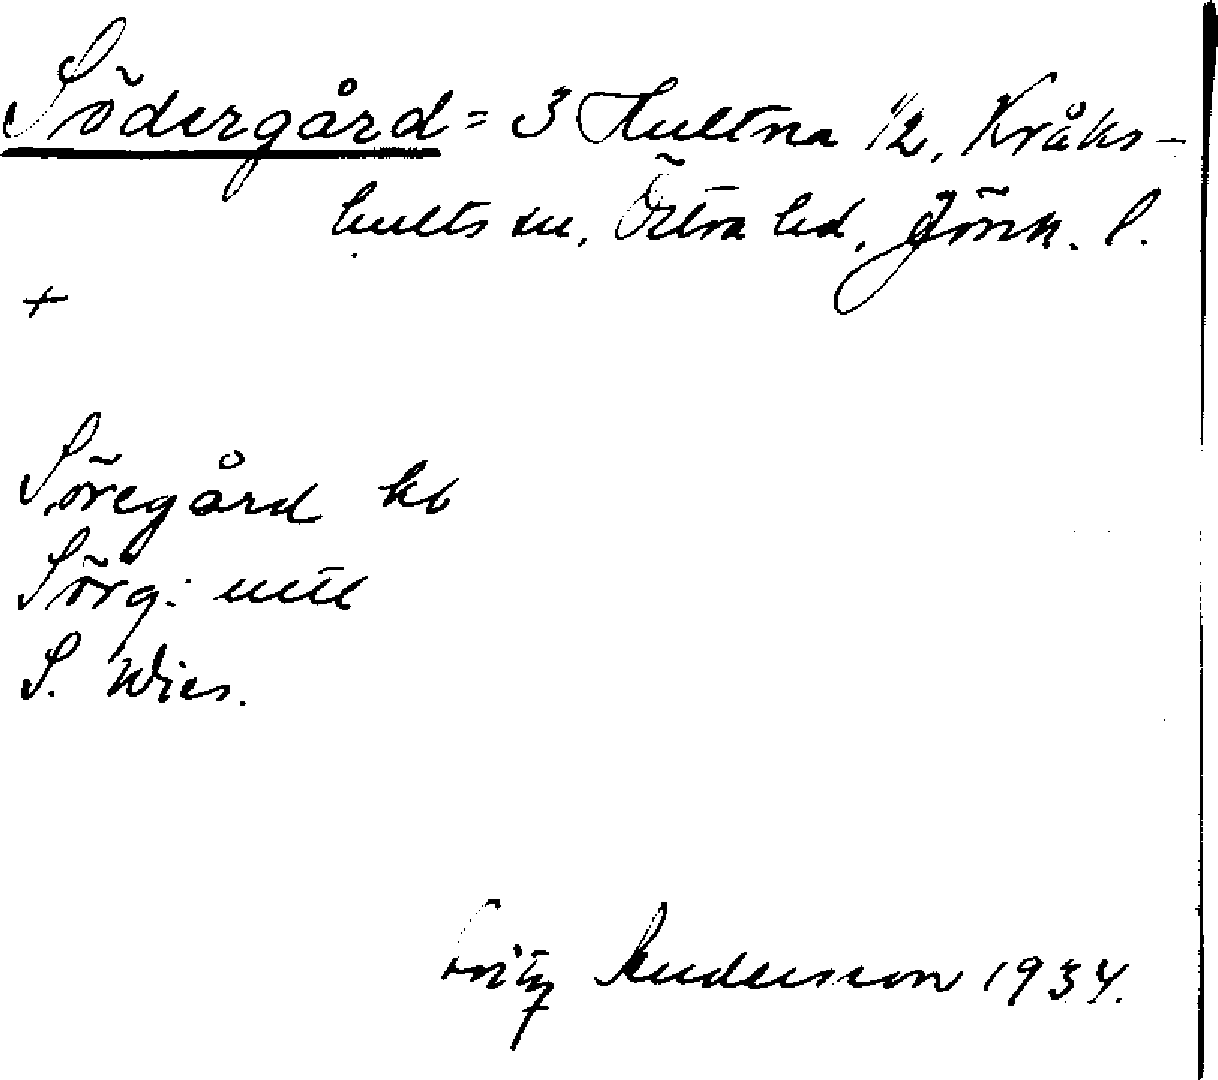 Södergård = 3 Hultna 1/2, Kråks-
hults sn, Östra hd, Jönk. l.
+
Söregård kb
Sörg: uttl
S. Wies.
Fritz Andersson 1934.